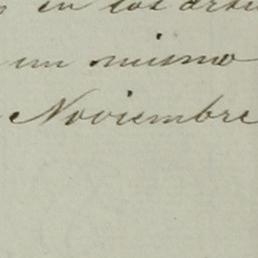 en los
un mismo
Noviembre